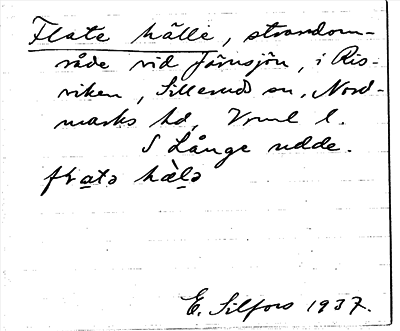 Flate hälle, strandom-
råde vid Järnsjön, i Ris-
viken, Silleruds sn, Nord-
marks hd, Vrml l.
S Långe udde.
flatə hälə
E. Silfors 1937.